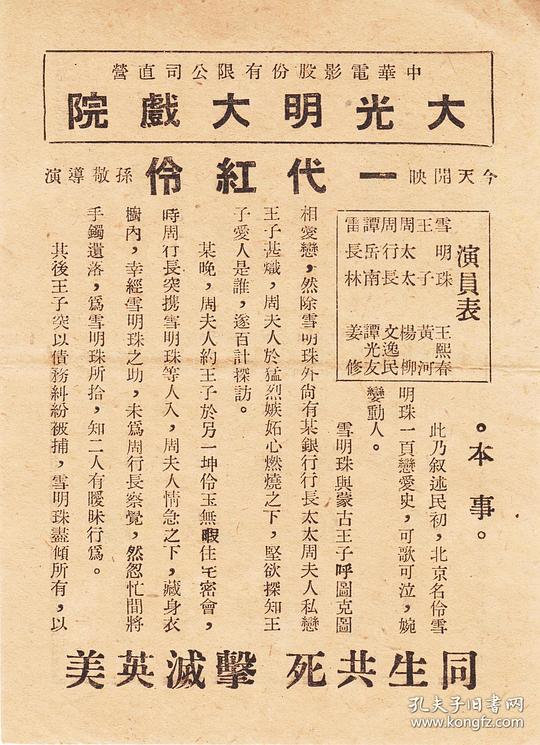 中華電影股份有限公司直營
大光明大戲院
今天開映 一代紅伶 孫敬導演
演員表
雪明珠 王熙春
王子 黃河
周太太 楊柳
周行長 文逸民
譚岳南 譚光友
雷長林 姜修
。本事。
此乃叙述民初,北京名伶雪
明珠一頁戀愛史,可歌可泣,婉
孌動人。
雪明珠與蒙古王子呼圖克圖
相愛戀,然除雪明珠外尙有某銀行行長太太周夫人私戀
王子甚熾,周夫人於猛烈嫉妬心燃燒之下,堅欲探知王
子愛人是誰,遂百計探訪。
某晚,周夫人約王子於另一坤伶玉無暇住宅密會,
時周行長突携雪明珠等人入,周夫人情急之下,藏身衣
橱內,幸經雪明珠之助,未爲周行長察覺,然怱忙間將
手鐲遺落,爲雪明珠所拾,知二人有曖昧行爲。
其後王子突以債務糾紛被捕,雪明珠盡傾所有,以
同生共死 擊滅英美
孔夫子旧书网
www.kongfz.com